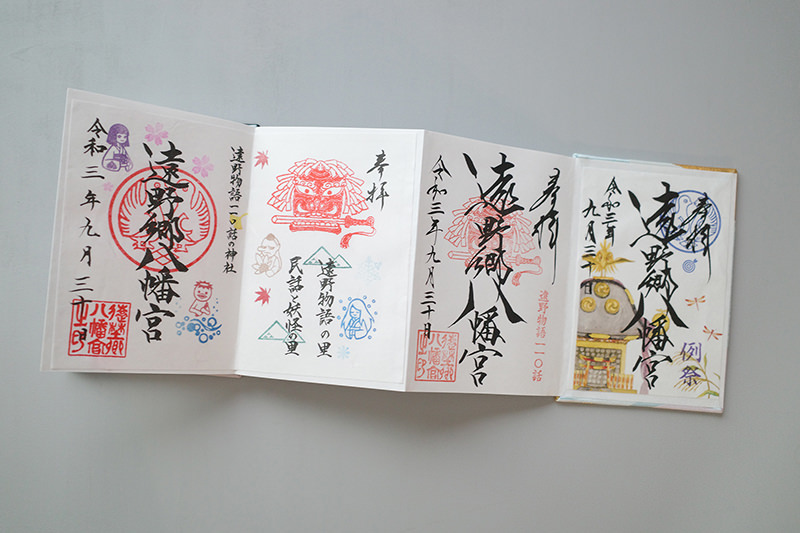 遠野物語一一〇話の神社
遠野郷八幡宮
令和三年九月三十日
奉拝
遠野物語の里
民話と妖怪の里
奉拝
遠野物語一一〇話
遠野郷八幡宮
令和三年九月三十日
奉拝
例祭
遠野郷八幡宮
令和三年
九月三十日